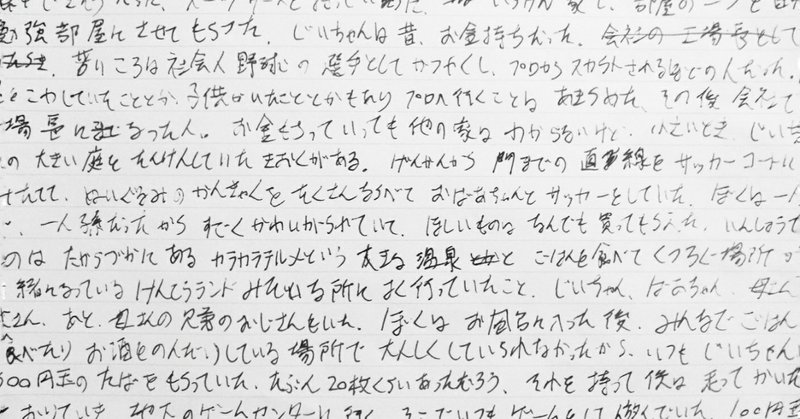 勉強部屋にさせてもらってた。じいちゃんは昔、お金持ちだった。会社の工場長として
若いころは社会人野球の選手としてかつやくし、プロからスカウトされるほどの人だった。
こわしていたこととか、子供がいたこととかもあり プロへ行くことは あきらめた。その後 会社で
場長になった人。お金もちっていっても他の家は わからないけど、小さいとき、じいち
の大きい庭をたんけんしていた きおくがある。げんかんから 門までの 直線を サッカーコートに
せたてて、ぬいぐるみのかんきゃくを たくさんならべて おばあちゃんと サッカーをしていた。ぼくは一人
、一人孫だったから すごくかわいがられていて、ほしいものは なんでも買ってもらえた。いんしょうて
のは たからづかにある カラカラテルメという 大きな 温泉 と ごはんを食べて くつろぐ場所 が
結になっている けんこうランド みたいな所に よく行っていたこと。じいちゃん、ばあちゃん 母さん
さん、あと、母さんの兄弟のおじさんもいた。ぼくは お風呂に入った後、みんなで ごはん
食べたり お酒をのんだりしている場所で 大人しくしていられなかったから、いつも じいちゃんに
500円玉の たばを もらっていた。たぶん 20枚くらいあっただろう。それを持って 僕は 走って かいだ
おりていき、地下のゲームセンターに行く。そこでいつも ゲームをして遊んでいた。100円玉